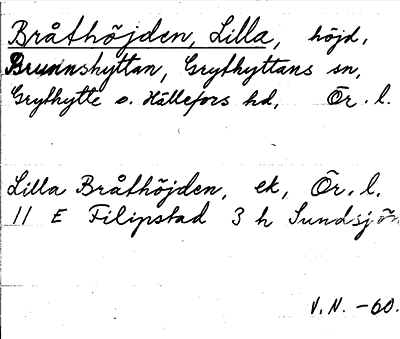 Bråthöjden, Lilla, höjd,
Brunnshyttan, Grythyttans sn,
Grythytte o. Hällefors hd, Ör. l.
Lilla Bråthöjden, ek, Ör. l.
11 E Filipstad 3 h Sundsjön
V.N. -60.